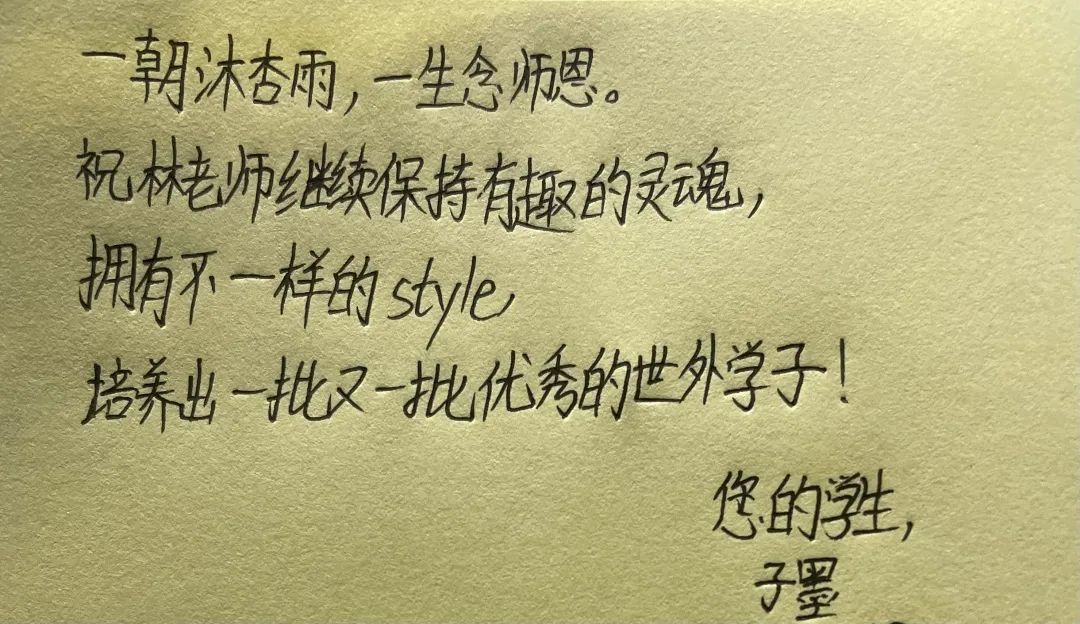 一朝沐杏雨,一生念师恩。
祝林老师继续保持有趣的灵魂,
拥有不一样的style,
培养出一批又一批优秀的世外学子!
您的学生,
子墨